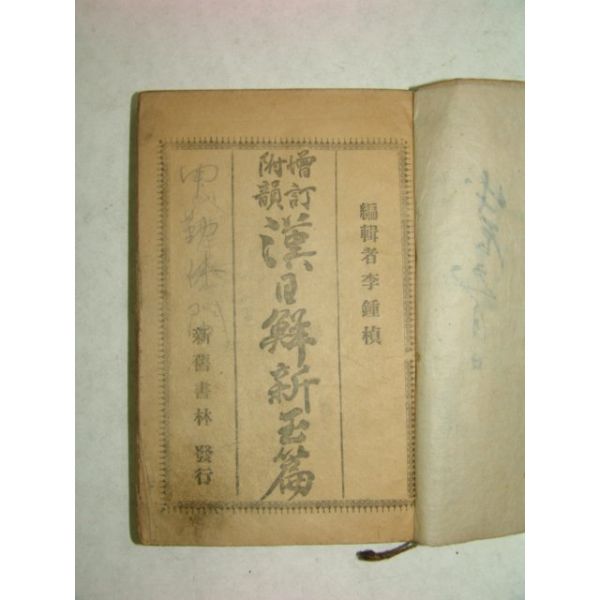 編輯者李鍾楨
增訂
附韻
漢日鮮新玉篇
新舊書林 發行